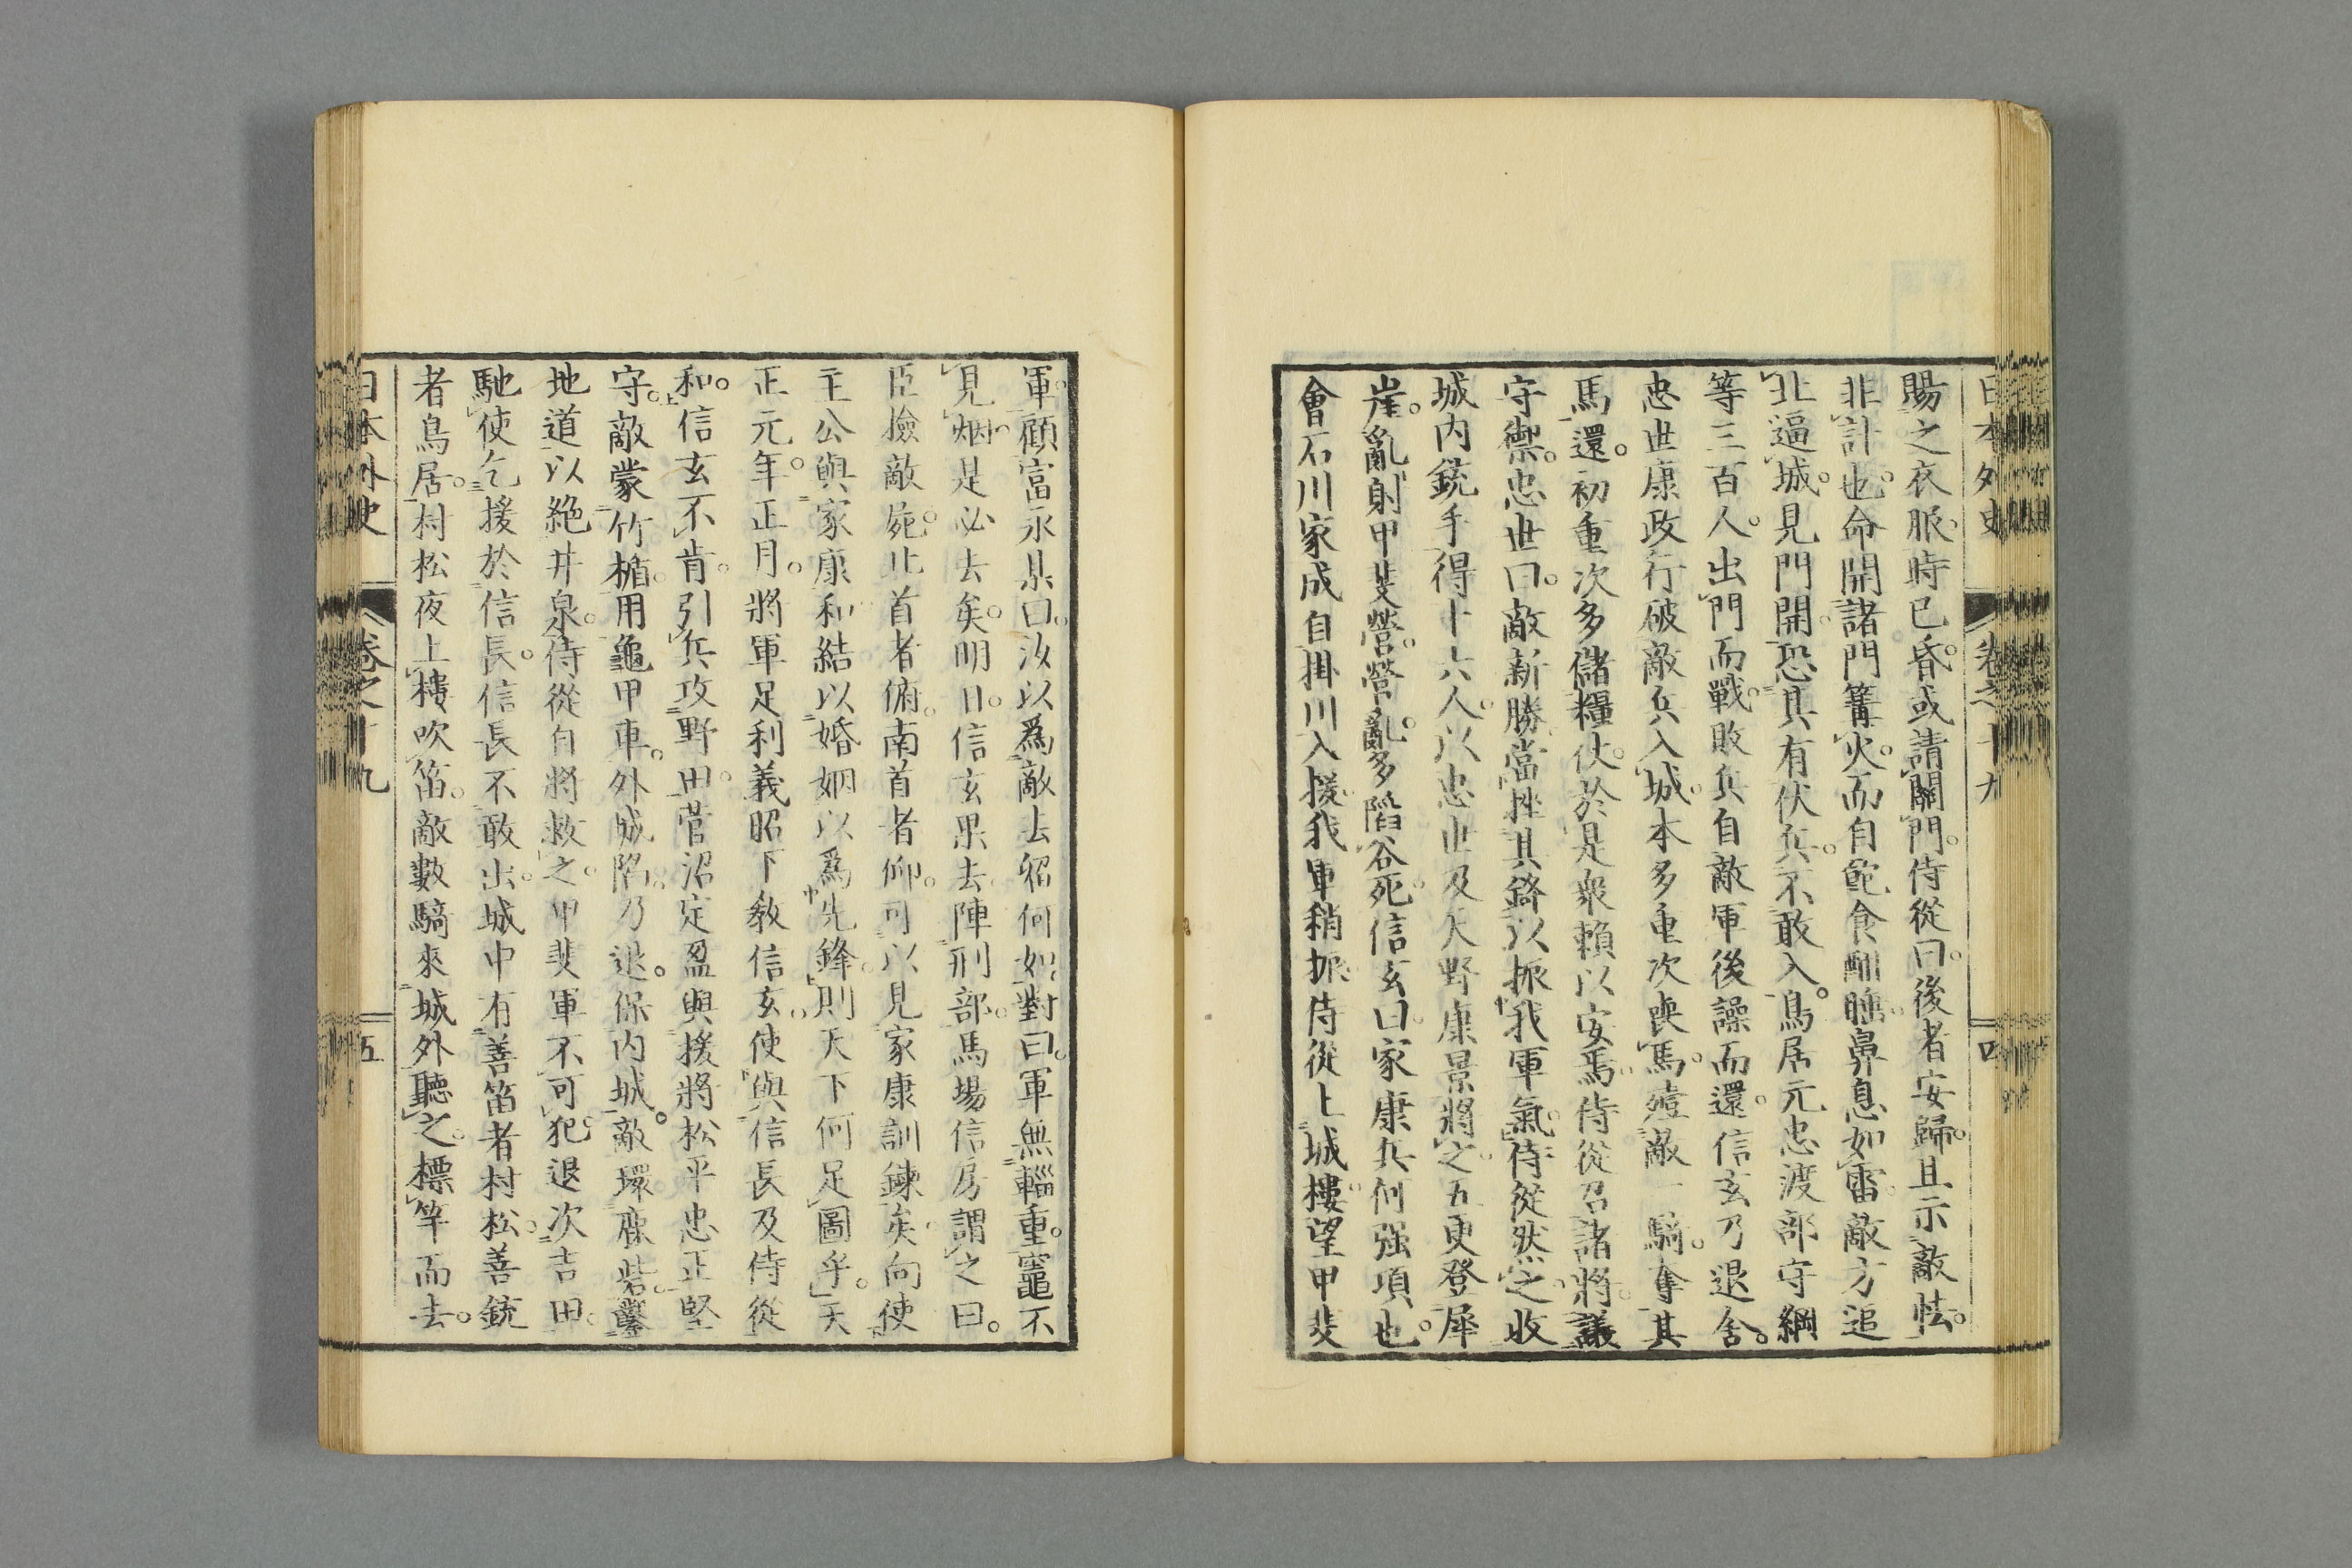 日本外史 卷之十九 四
賜之衣服。時已昏。或請關門。侍從曰。後者安歸。且示敵怯。
非計也。命開諸門篝火。而自飽食酣睡。鼻息如雷。敵方追
北逼城。見門開。恐其有伏兵。不敢入。鳥居元忠渡部守綱
等三百人。出門而戰。敗兵自敵軍後譟而還。信玄乃退舍。
忠世康政行破敵兵入城。本多重次喪馬。殪敵一騎。奪其
馬還。初重次多儲糧仗。於是衆賴以安焉。侍從召諸將。議
守禦。忠世曰。敵新勝。當挫其鋒以振我軍氣。侍從然之。收
城内銃手。得十六人。以忠世及天野康景將之。五更登犀
崖。亂射甲斐營。營亂。多陷谷死。信玄曰。家康兵何强項也。
會石川家成自掛川入援。我軍稍振。侍從上城樓。望甲斐
軍。顧富永某曰。汝以爲敵去留何如。對曰。軍無輜重。竈不
見烟。是必去矣。明日。信玄果去陣刑部。馬場信房謂之曰。
臣撿敵屍。北首者俯。南首者仰。可以見家康訓鍊矣。向使
主公與家康和。結以婚姻。以爲先鋒。則天下何足圖乎。天
正元年。正月。將軍足利義昭下教信玄。使與信長及侍從
和。信玄不肯。引兵攻野田。菅沼定盈與援將松平忠正堅
守。敵蒙竹楯。用龜甲車。外城陷。乃退。保内城。敵環鹿砦。鑿
地道以絶井泉。侍從自將救之。甲斐軍不可犯。退次吉田。
馳使乞援於信長。信長不敢出。城中有善笛者村松。善銃
者鳥居。村松夜上樓吹笛。敵數騎來城外聽之。標竿而去。
日本外史 卷之十九 五